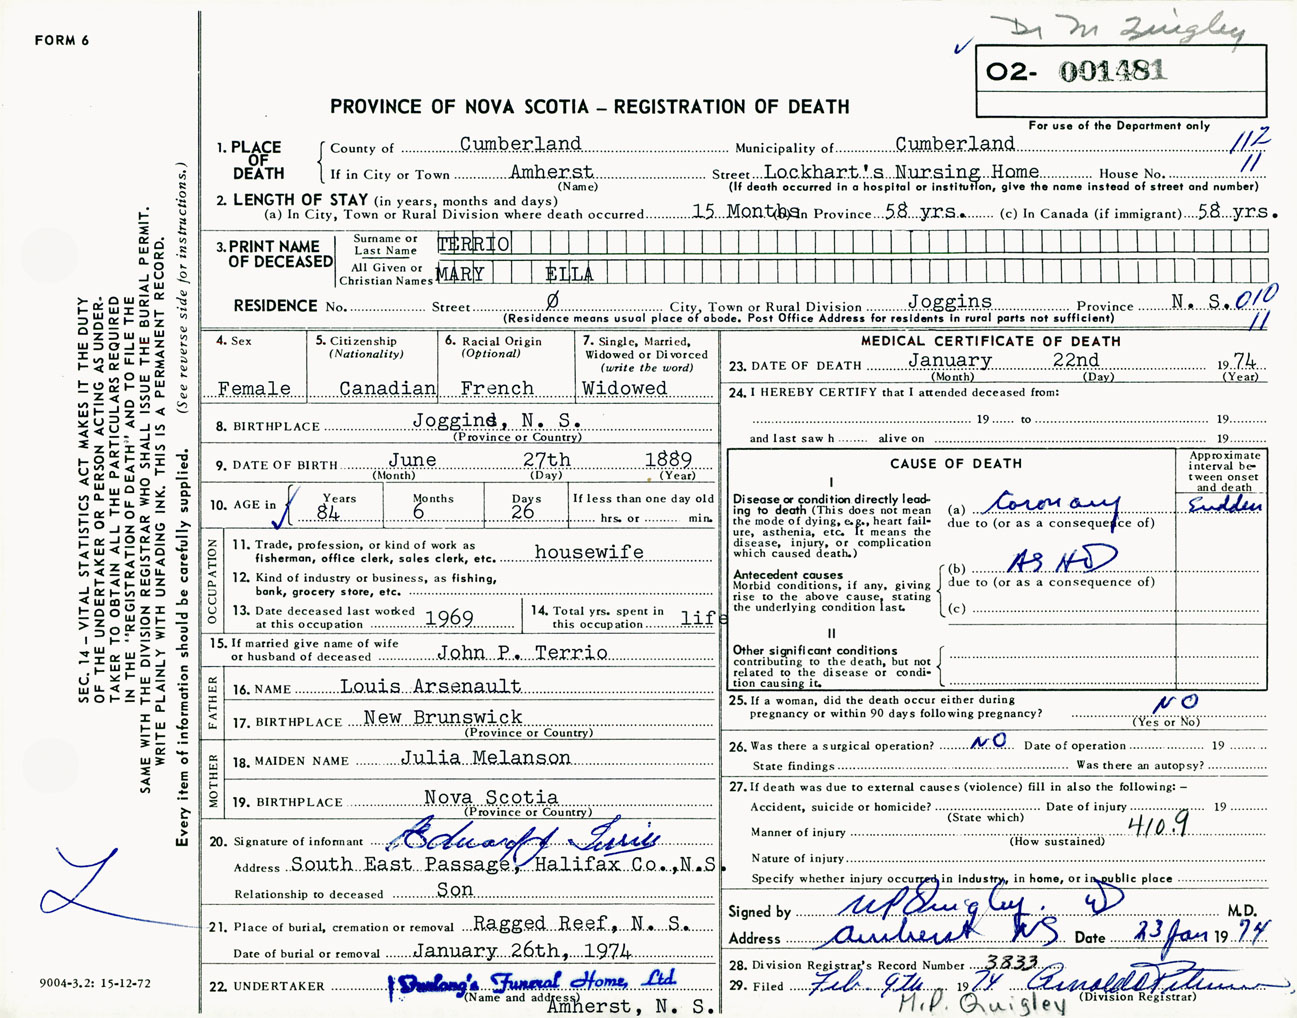 Dr M Quigley
FORM 6
O2- 001481
PROVINCE OF NOVA SCOTIA – REGISTRATION OF DEATH
For use of the Department only
1. PLACE OF DEATH
County of Cumberland Municipality of Cumberland 112
If in City or Town Amherst Street Lockhart's Nursing Home House No. 11
(Name) (If death occurred in a hospital or institution, give the name instead of street and number)
2. LENGTH OF STAY (in years, months and days)
(a) In City, Town or Rural Division where death occurred 15 Months (b) In Province 58 yrs. (c) In Canada (if immigrant) 58 yrs.
3. PRINT NAME OF DECEASED
Surname or Last Name TERRIO
All Given or Christian Names MARY ELLA
RESIDENCE No. Street Ø City, Town or Rural Division Joggins Province N. S. 010
(Residence means usual place of abode. Post Office Address for residents in rural parts not sufficient) 11
4. Sex
Female
5. Citizenship
(Nationality)
Canadian
6. Racial Origin
(Optional)
French
7. Single, Married,
Widowed or Divorced
(write the word)
Widowed
8. BIRTHPLACE Joggins, N. S.
(Province or Country)
9. DATE OF BIRTH June 27th 1889
(Month) (Day) (Year)
10. AGE in Years Months Days If less than one day old
84 6 26 hrs. or min.
OCCUPATION
11. Trade, profession, or kind of work as
fisherman, office clerk, sales clerk, etc. housewife
12. Kind of industry or business, as fishing,
bank, grocery store, etc.
13. Date deceased last worked
at this occupation 1969
14. Total yrs. spent in
this occupation life
15. If married give name of wife
or husband of deceased John P. Terrio
FATHER
16. NAME Louis Arsenault
17. BIRTHPLACE New Brunswick
(Province or Country)
MOTHER
18. MAIDEN NAME Julia Melanson
19. BIRTHPLACE Nova Scotia
(Province or Country)
20. Signature of informant Edward J Terrio
Address South East Passage, Halifax Co., N.S.
Relationship to deceased Son
21. Place of burial, cremation or removal Ragged Reef, N. S.
Date of burial or removal January 26th, 1974
22. UNDERTAKER Furlong's Funeral Home, Ltd.
(Name and address)
Amherst, N. S.
MEDICAL CERTIFICATE OF DEATH
23. DATE OF DEATH January 22nd 19 74
(Month) (Day) (Year)
24. I HEREBY CERTIFY that I attended deceased from:
19 to 19
and last saw h alive on 19
CAUSE OF DEATH
Approximate
interval be-
tween onset
and death
I
Disease or condition directly lead-
ing to death (This does not mean
the mode of dying, e.g., heart fail-
ure, asthenia, etc. It means the
disease, injury, or complication
which caused death.)
(a) Coronary Sudden
due to (or as a consequence of)
Antecedent causes
Morbid conditions, if any, giving
rise to the above cause, stating
the underlying condition last.
(b) AS HD
due to (or as a consequence of)
(c)
II
Other significant conditions
contributing to the death, but not
related to the disease or condi-
tion causing it.
25. If a woman, did the death occur either during
pregnancy or within 90 days following pregnancy? NO
(Yes or No)
26. Was there a surgical operation? NO Date of operation 19
State findings Was there an autopsy?
27. If death was due to external causes (violence) fill in also the following: –
Accident, suicide or homicide? Date of injury 19
(State which)
Manner of injury 410.9
(How sustained)
Nature of injury
Specify whether injury occurred in Industry, in home, or in public place
Signed by MP Quigley. MD M.D.
Address Amherst NS Date 23 Jan 19 74
28. Division Registrar's Record Number 3833
29. Filed Feb. 9th 19 74
(Division Registrar)
M.P. Quigley
SEC. 14 – VITAL STATISTICS ACT MAKES IT THE DUTY
OF THE UNDERTAKER OR PERSON ACTING AS UNDER-
TAKER TO OBTAIN ALL THE PARTICULARS REQUIRED
IN THE "REGISTRATION OF DEATH" AND TO FILE THE
SAME WITH THE DIVISION REGISTRAR WHO SHALL ISSUE THE BURIAL PERMIT.
WRITE PLAINLY WITH UNFADING INK. THIS IS A PERMANENT RECORD.
Every item of information should be carefully supplied. (See reverse side for instructions.)
9004-3.2: 15-12-72